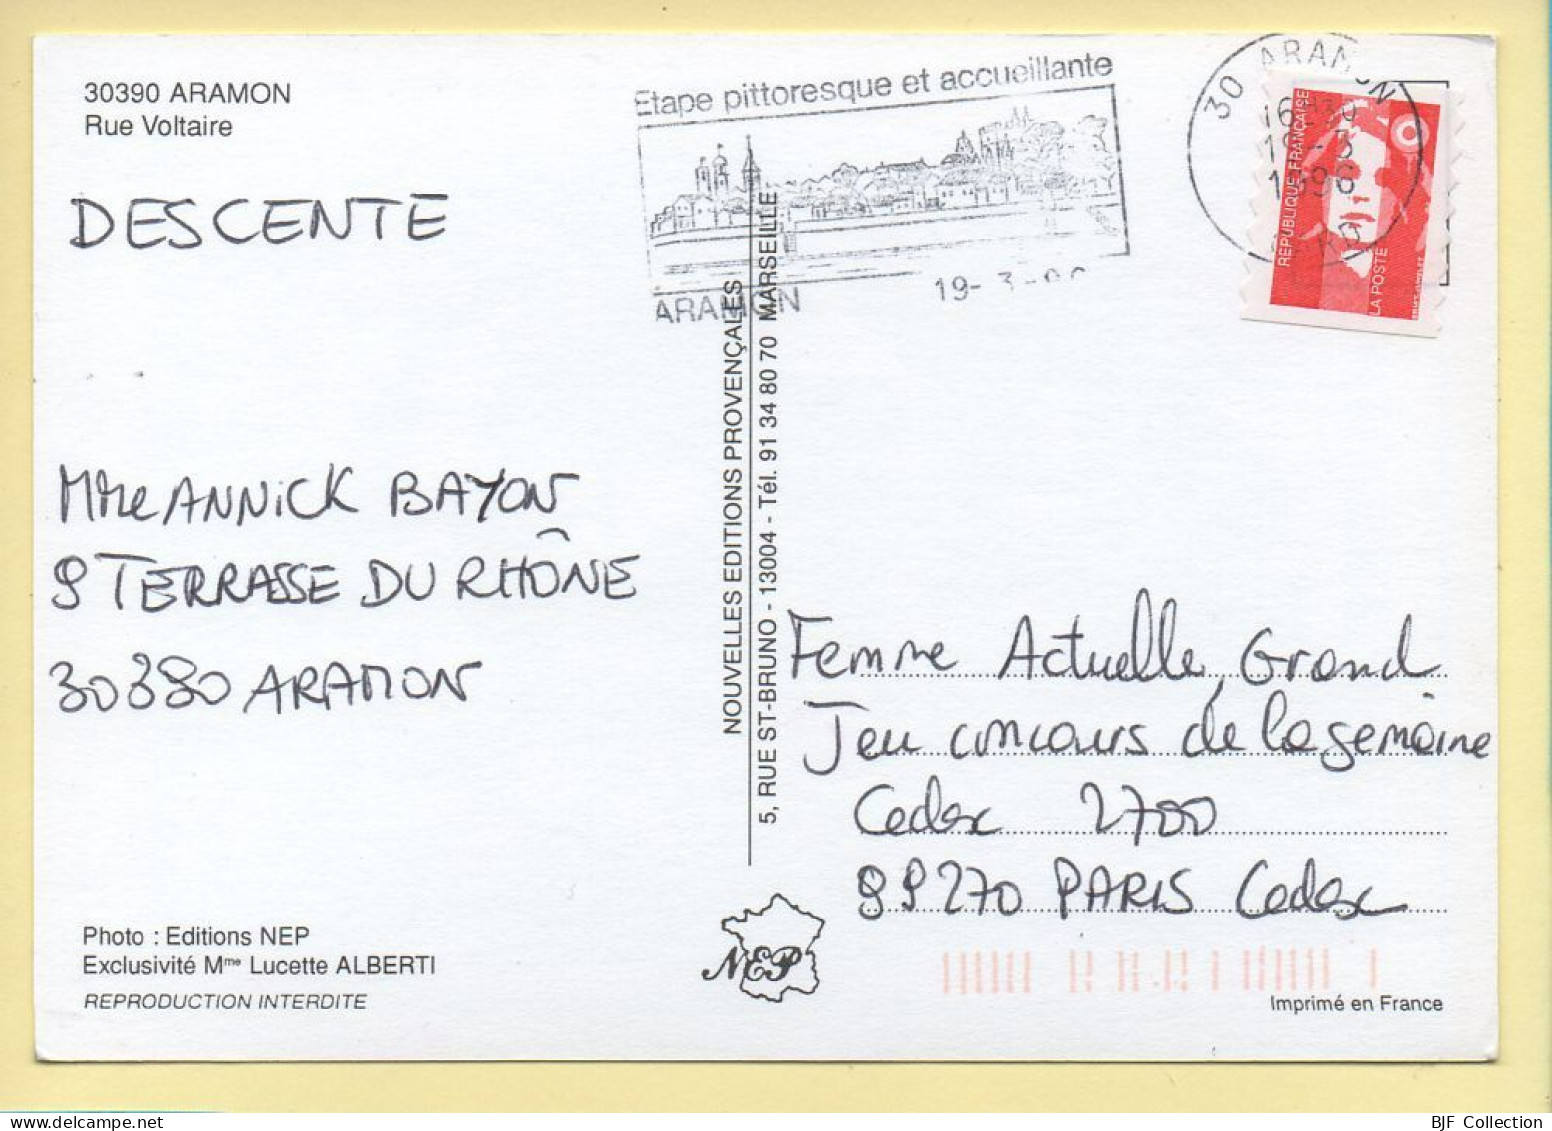 30390 ARAMON
Rue Voltaire
DESCENTE
Mme ANNICK BAYON
9 TERRASSE DU RHÔNE
30390 ARAMON
Photo : Editions NEP
Exclusivité Mme Lucette ALBERTI
REPRODUCTION INTERDITE
Etape pittoresque et accueillante
ARAMON
19-3-96
30 ARAMON
16H30
19-3
1996
GARD
REPUBLIQUE FRANÇAISE
LA POSTE
NOUVELLES EDITIONS PROVENÇALES
5, RUE ST-BRUNO - 13004 - Tél. 91 34 80 70 MARSEILLE
Femme Actuelle, Grand
Jeu concours de la semaine
Cedex 2700
99270 PARIS Cedex
NEP
Imprimé en France
BJF Collection